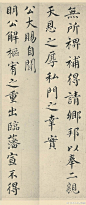 無所裨補得請鄉邦以奉二親
天恩之厚私門之幸實
公大賜自聞
明公解樞宥之重出臨藩宣不得